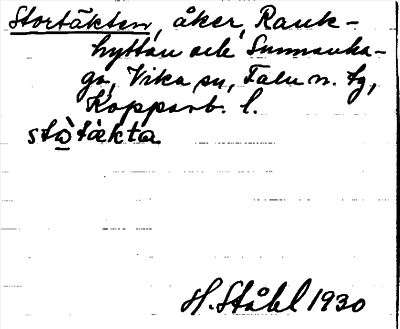 Stortäkten, åker, Rank-
hyttan och Sunnanha-
ga, Vika sn, Falu n. tg,
Kopparb. l.
stòtäkta
H. Ståhl 1930